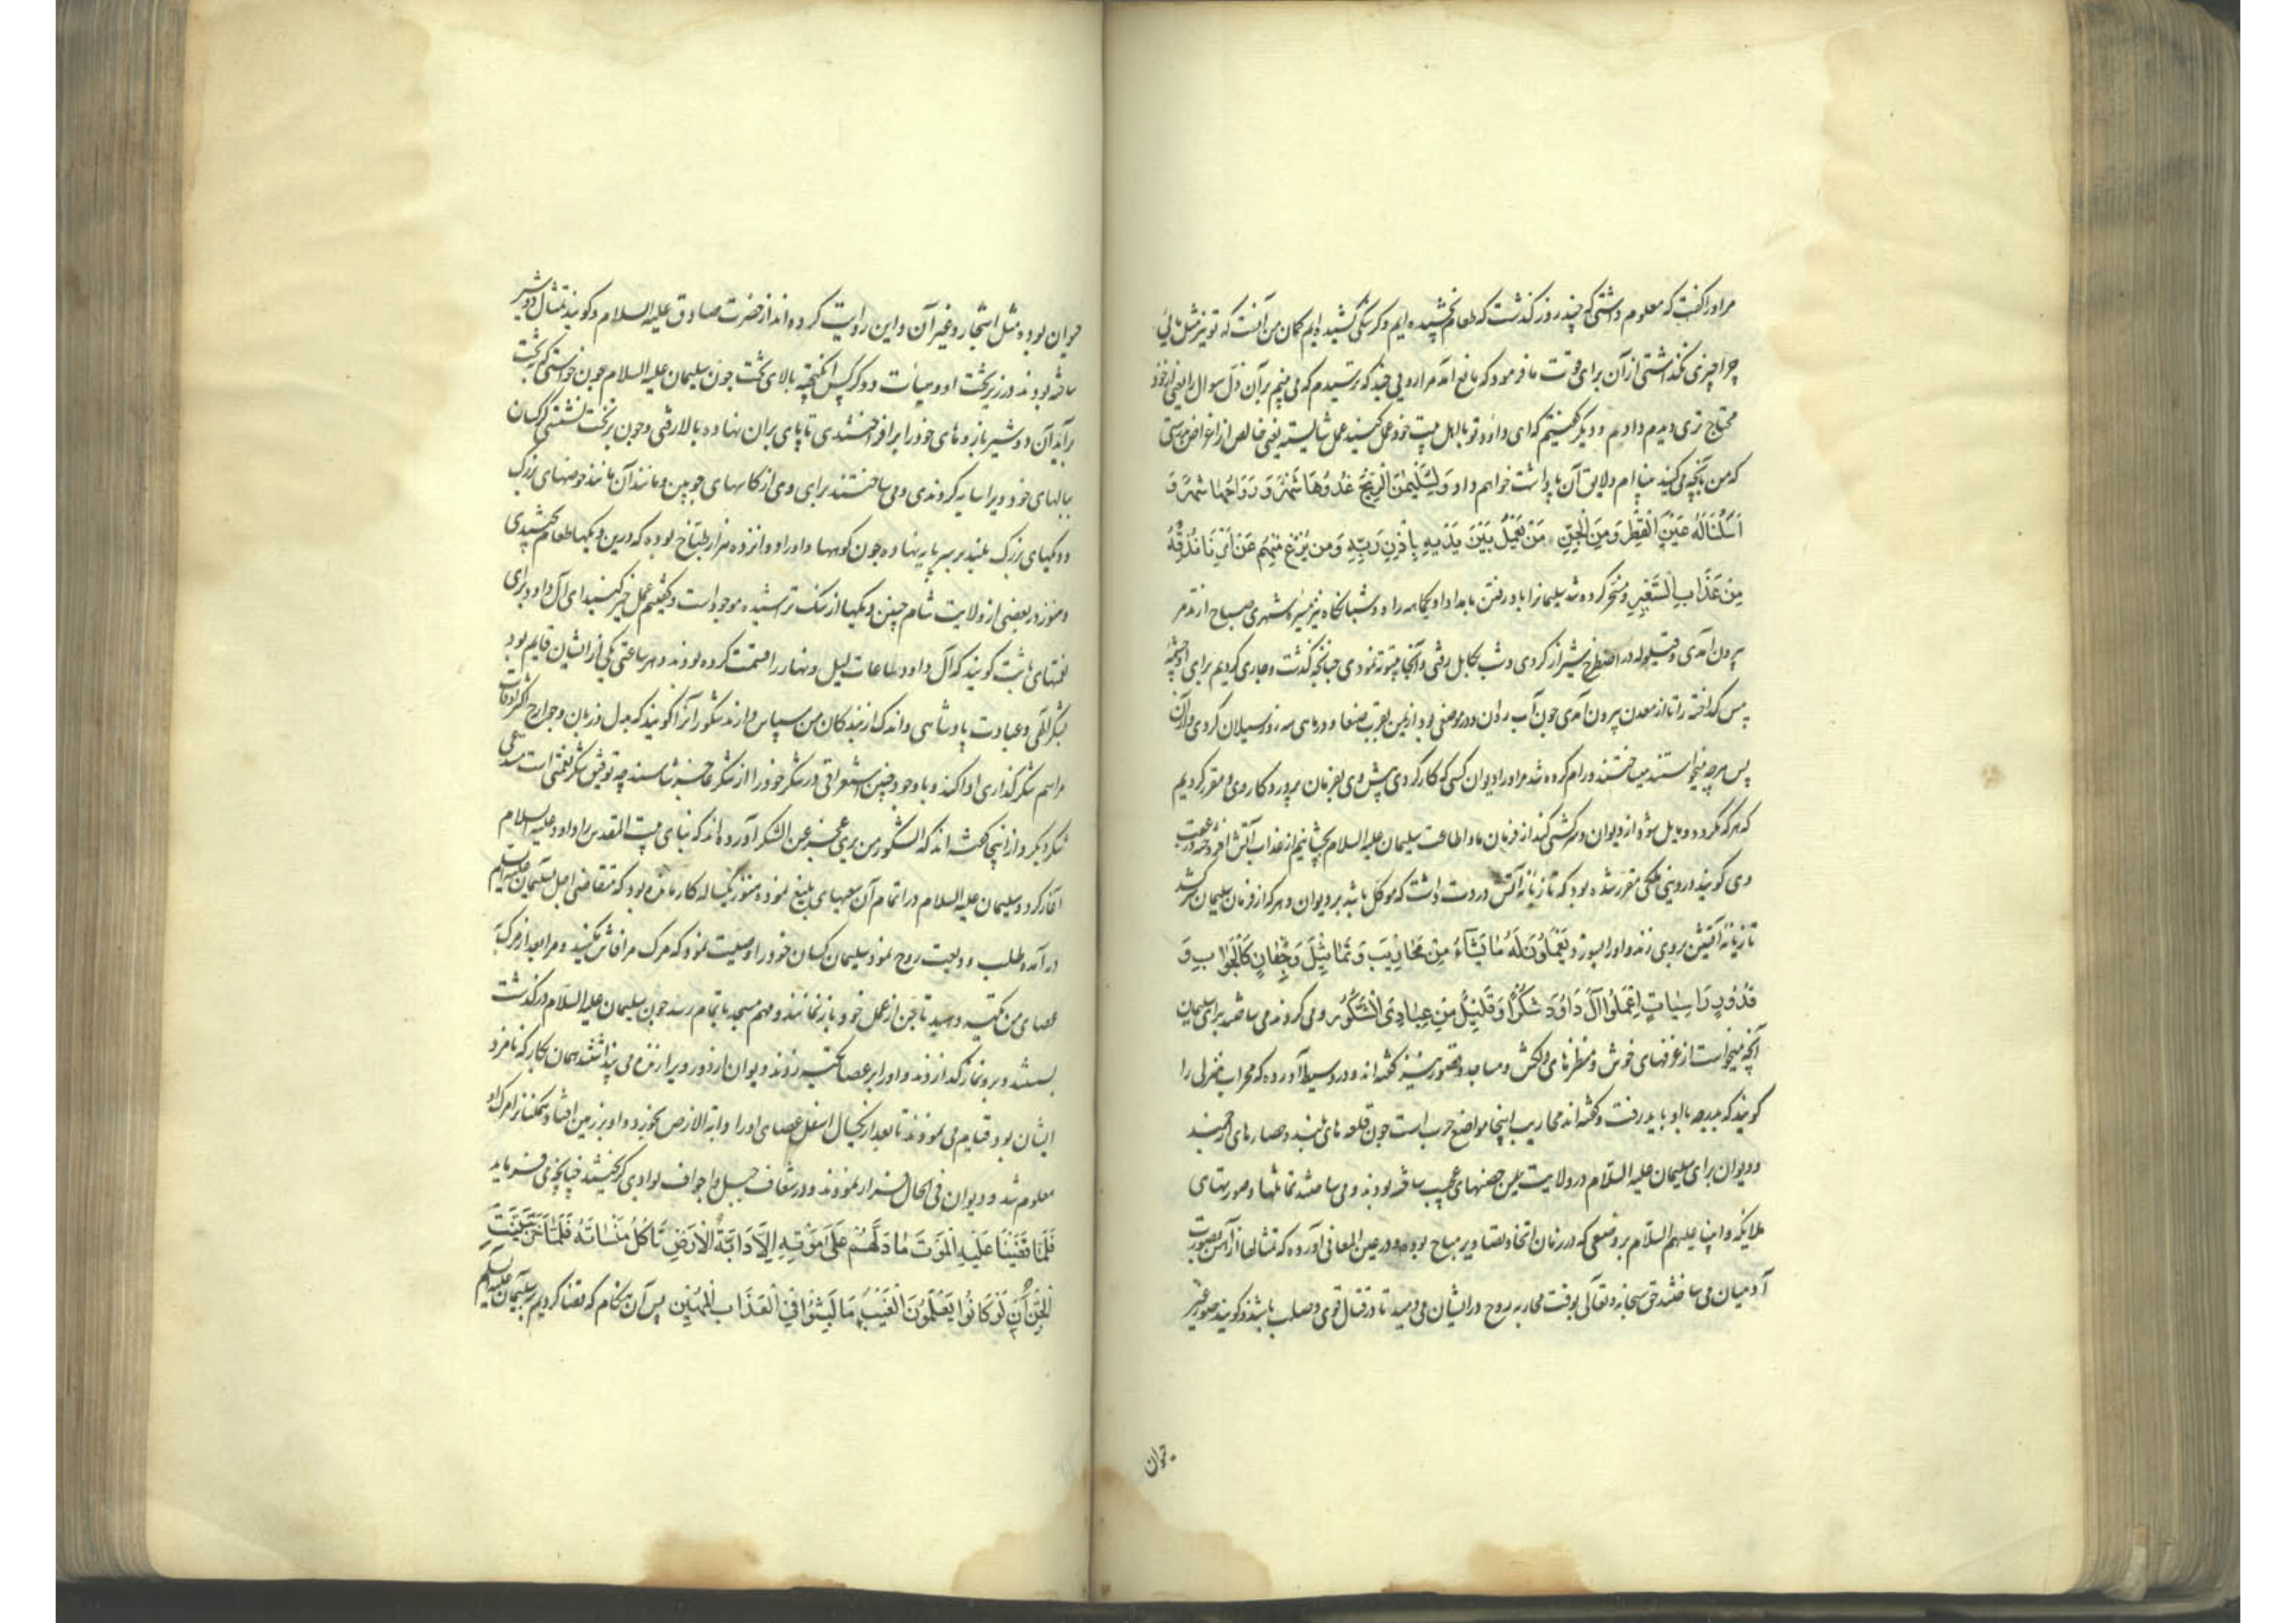 مراورا گفت که معلوم داشتی که چند روز گذشت که طعام نچشیده ایم و گرسنگی کشیده ایم گمان من آنست که تو نیز مثل مائی
چرا چیزی نگذاشتی از آن برای قوت ما فرمود که مانع آمد مرا روئی چند که ترسیدم که می بینم بر آن ذل سوال را یعنی از خود
محتاج تری دیدم دادم و دیگر گفتیم که ای داود تو با اهل بیت خود عمل کنید عمل شایسته یعنی خالص از اغراض بدرستی
که من بآنچه می کنید بینا ام و لایق آن پاداشت خواهم داد وَلِسُلَیْمٰنَ الرِّیْحَ غُدُوُّهَا شَهْرٌ وَ رَوَاحُهَا شَهْرٌ وَ
اَسَلْنَا لَهُ عَیْنَ الْقِطْرِ وَمِنَ الْجِنِّ مَنْ یَعْمَلُ بَیْنَ یَدَیْهِ بِاِذْنِ رَبِّهِ وَمَنْ یَزِغْ مِنْهُمْ عَنْ اَمْرِنَا نُذِقْهُ
مِنْ عَذَابِ السَّعِیْرِ و مسخر کرده شد سلیمانرا باد رفتن بامداد او یکماهه راه و شبانگاه نیز مسیره شهری صباح از تدمر
بیرون آمدی و قیلوله در اصطخر شیراز کردی و شب بکابل رفتی و آنجا بیتوته نمودی چنانچه گذشت و جاری کردیم برای او چشمه
مس گداخته را تا از معدن بیرون آمدی چون آب روان و در موضعی بود از یمن بقرب صنعا و در ماهی سه روز سیلان کردی و از آن
پس هرچه میخواستند میساختند و رام کرده شد مر او را دیوان کسی که کار کردی پیش وی بفرمان پروردگار وی و مقرر کردیم
که هر که بگردد و مایل شود از دیوان و سرکشی کند از فرمان ما و اطاعت سلیمان علیه السلام بچشانیم از عذاب آتش افروخته در عقبت
وی گویند در دنیی ملکی مقرر شده بود که تازیانه آتش در دست داشت که موکل باشد بر دیوان و هر که از فرمان سلیمان سر کشد
تازیانه آتشین بر وی زند و او را بسوزد یَعْمَلُوْنَ لَهُ مٰا یَشَآءُ مِنْ مَحَارِیْبَ وَ تَمَاثِیْلَ وَ جِفَانٍ کَالْجَوَابِ وَ
قُدُوْرٍ رَاسِیٰاتٍ اِعْمَلُوْا اٰلَ دَاوُدَ شُکْرًا وَ قَلِیْلٌ مِنْ عِبٰادِیَ الشَّکُوْرُ و می کردند می ساختند برای سلیمان
آنچه میخواست از غرفهای خوش و منظرهای دلکش و مساجد و قصور نیز گفته اند و در وسیط آورده که محراب منزلی را
گویند که بدرجه باو باید رفت و گفته اند محاریب اینجا مواضع حرب است چون قلعه های بلند و حصارهای ارجمند
و دیوان برای سلیمان علیه السلام در ولایت یمن حصنهای عجیب ساخته بودند و می ساختند تمثالها و صورتهای
ملایکه و انبیا علیهم السلام بر وضعی که در زمان اتخاذ تصاویر مباح بوده و در عین المعانی آورده که تمثالها از آهن بصورت
آدمیان می ساختند حق سبحانه و تعالی بوقت محاربه روح در ایشان می دمید تا در قتال قوی و صلب باشند و گویند صور غیر
حیوان
حیوان بوده مثل اشجار و غیر آن و این روایت کرده اند از حضرت صادق علیه السلام و گویند تمثال دو شیر
ساخته بودند در زیر تخت او و میأت دو کرکس انگیخته بالای تخت چون سلیمان علیه السلام چون خواستی که بتخت
برآید آن دو شیر بازوهای خود را برافراختندی تا پای بران نهاده بالا رفتی و چون بر تخت نشستی کرکسان
ببالهای خود ویرا سایه کردندی و می ساختند برای وی از کاسهای چوبین و مانند آن مانند حوضهای بزرگ
و دیگهای بزرگ بلند بر سر پایه نهاده چون کوهها و او را دوانزده هزار طباخ بوده که درین دیگها طعام می پختندی
و هنوز در بعضی از ولایت شام چنین دیگها از سنگ تراشیده موجود است و گفتیم عمل خیر کنید ای آل داود برای
نعمتهای ثابت گویند که آل داود ساعات لیل و نهار را قسمت کرده بودند و هر ساعتی یکی از ایشان قایم بود
بشکر الهی و عبادت پادشاهی و اندک از بندکان من سپاس دارند شکور آنرا گویند که بدل و زبان و جوارح اکثر اوقات
مراسم شکرگذاری ادا کند و با وجود چنین استغراقی در شکر خود را از شکر عاجز شناسند چه توفیق شکر نعمتی است مستدعی
شکر دیگر و از اینجا گفته اند که الشکور من یری عجزه عن الشکر آورده اند که بنای بیت المقدس را داود علیه السلام
آغاز کرد و سلیمان علیه السلام در اتمام آن سعیهای بلیغ نموده هنوز یکساله کار مانده بود که متقاضی اجل بسلیمان علیه السلام
درآمده طلب ودیعت روح نمود سلیمان کسان خود را وصیت نمود که مرگ مرا فاش نکنید و مرا بعد از مرگ بَ
عصای من تکیه دهید تا جن از عمل خود باز نمانند و مهم مسجد باتمام رسد چون سلیمان علیه السلام درگذشت
بشستند و برو نماز گذاردند و او را بر عصا تکیه زدند دیوان از دور ویرا زنده می پنداشتند بهمان کار که نامزد
ایشان بود قیام می نمودند تا بعد از یکسال اسفل عصای او را دابة الارض بخورد و او بر زمین افتاد همکنانرا مرگ او
معلوم شد و دیوان فی الحال فرار نمودند و در شعاف جبل و اجواف بوادی گریختند چنانچه می فرماید
فَلَمَّا قَضَیْنَا عَلَیْهِ الْمَوْتَ مَا دَلَّهُمْ عَلٰی مَوْتِهِ اِلَّا دَابَّةُ الْاَرْضِ تَاْکُلُ مِنْسَاَتَهُ فَلَمَّا خَرَّ تَبَیَّنَتِ
الْجِنُّ اَنْ لَوْ کَانُوْا یَعْلَمُوْنَ الْغَیْبَ مَا لَبِثُوْا فِی الْعَذَابِ الْمُهِیْنِ پس آن هنگام که قضا کردیم بر سلیمان علیه السلام